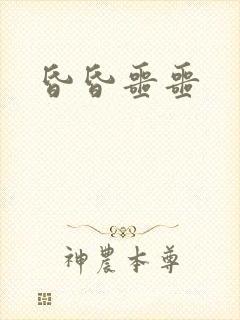 昏昏噩噩
神農本尊